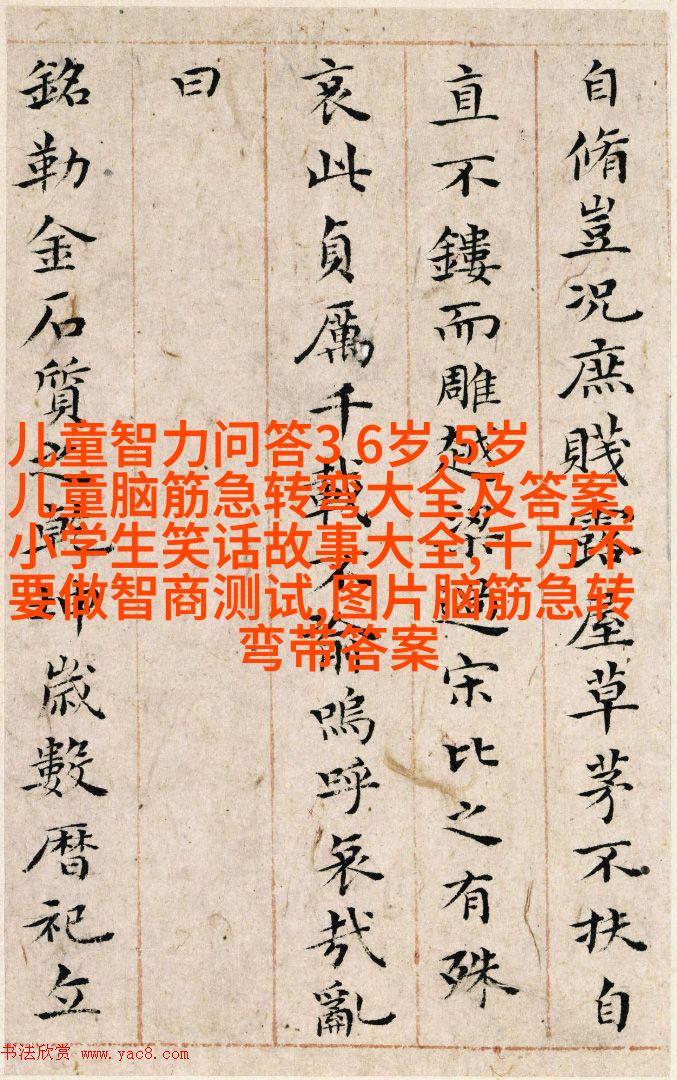 自脩豈況庶賤露屋草茅不扶自
直不鏤而雕越梁過宋比之有殊
哀此貞厲千載不渝嗚呼哀哉亂
曰
銘勒金石質之乾坤歲數曆祀立
儿童智力问答3 6岁,5岁
儿童脑筋急转弯大全及答案,
小学生笑话故事大全,千万不
要做智商测试,图片脑筋急转
弯带答案
书法欣赏 www.yac8.com